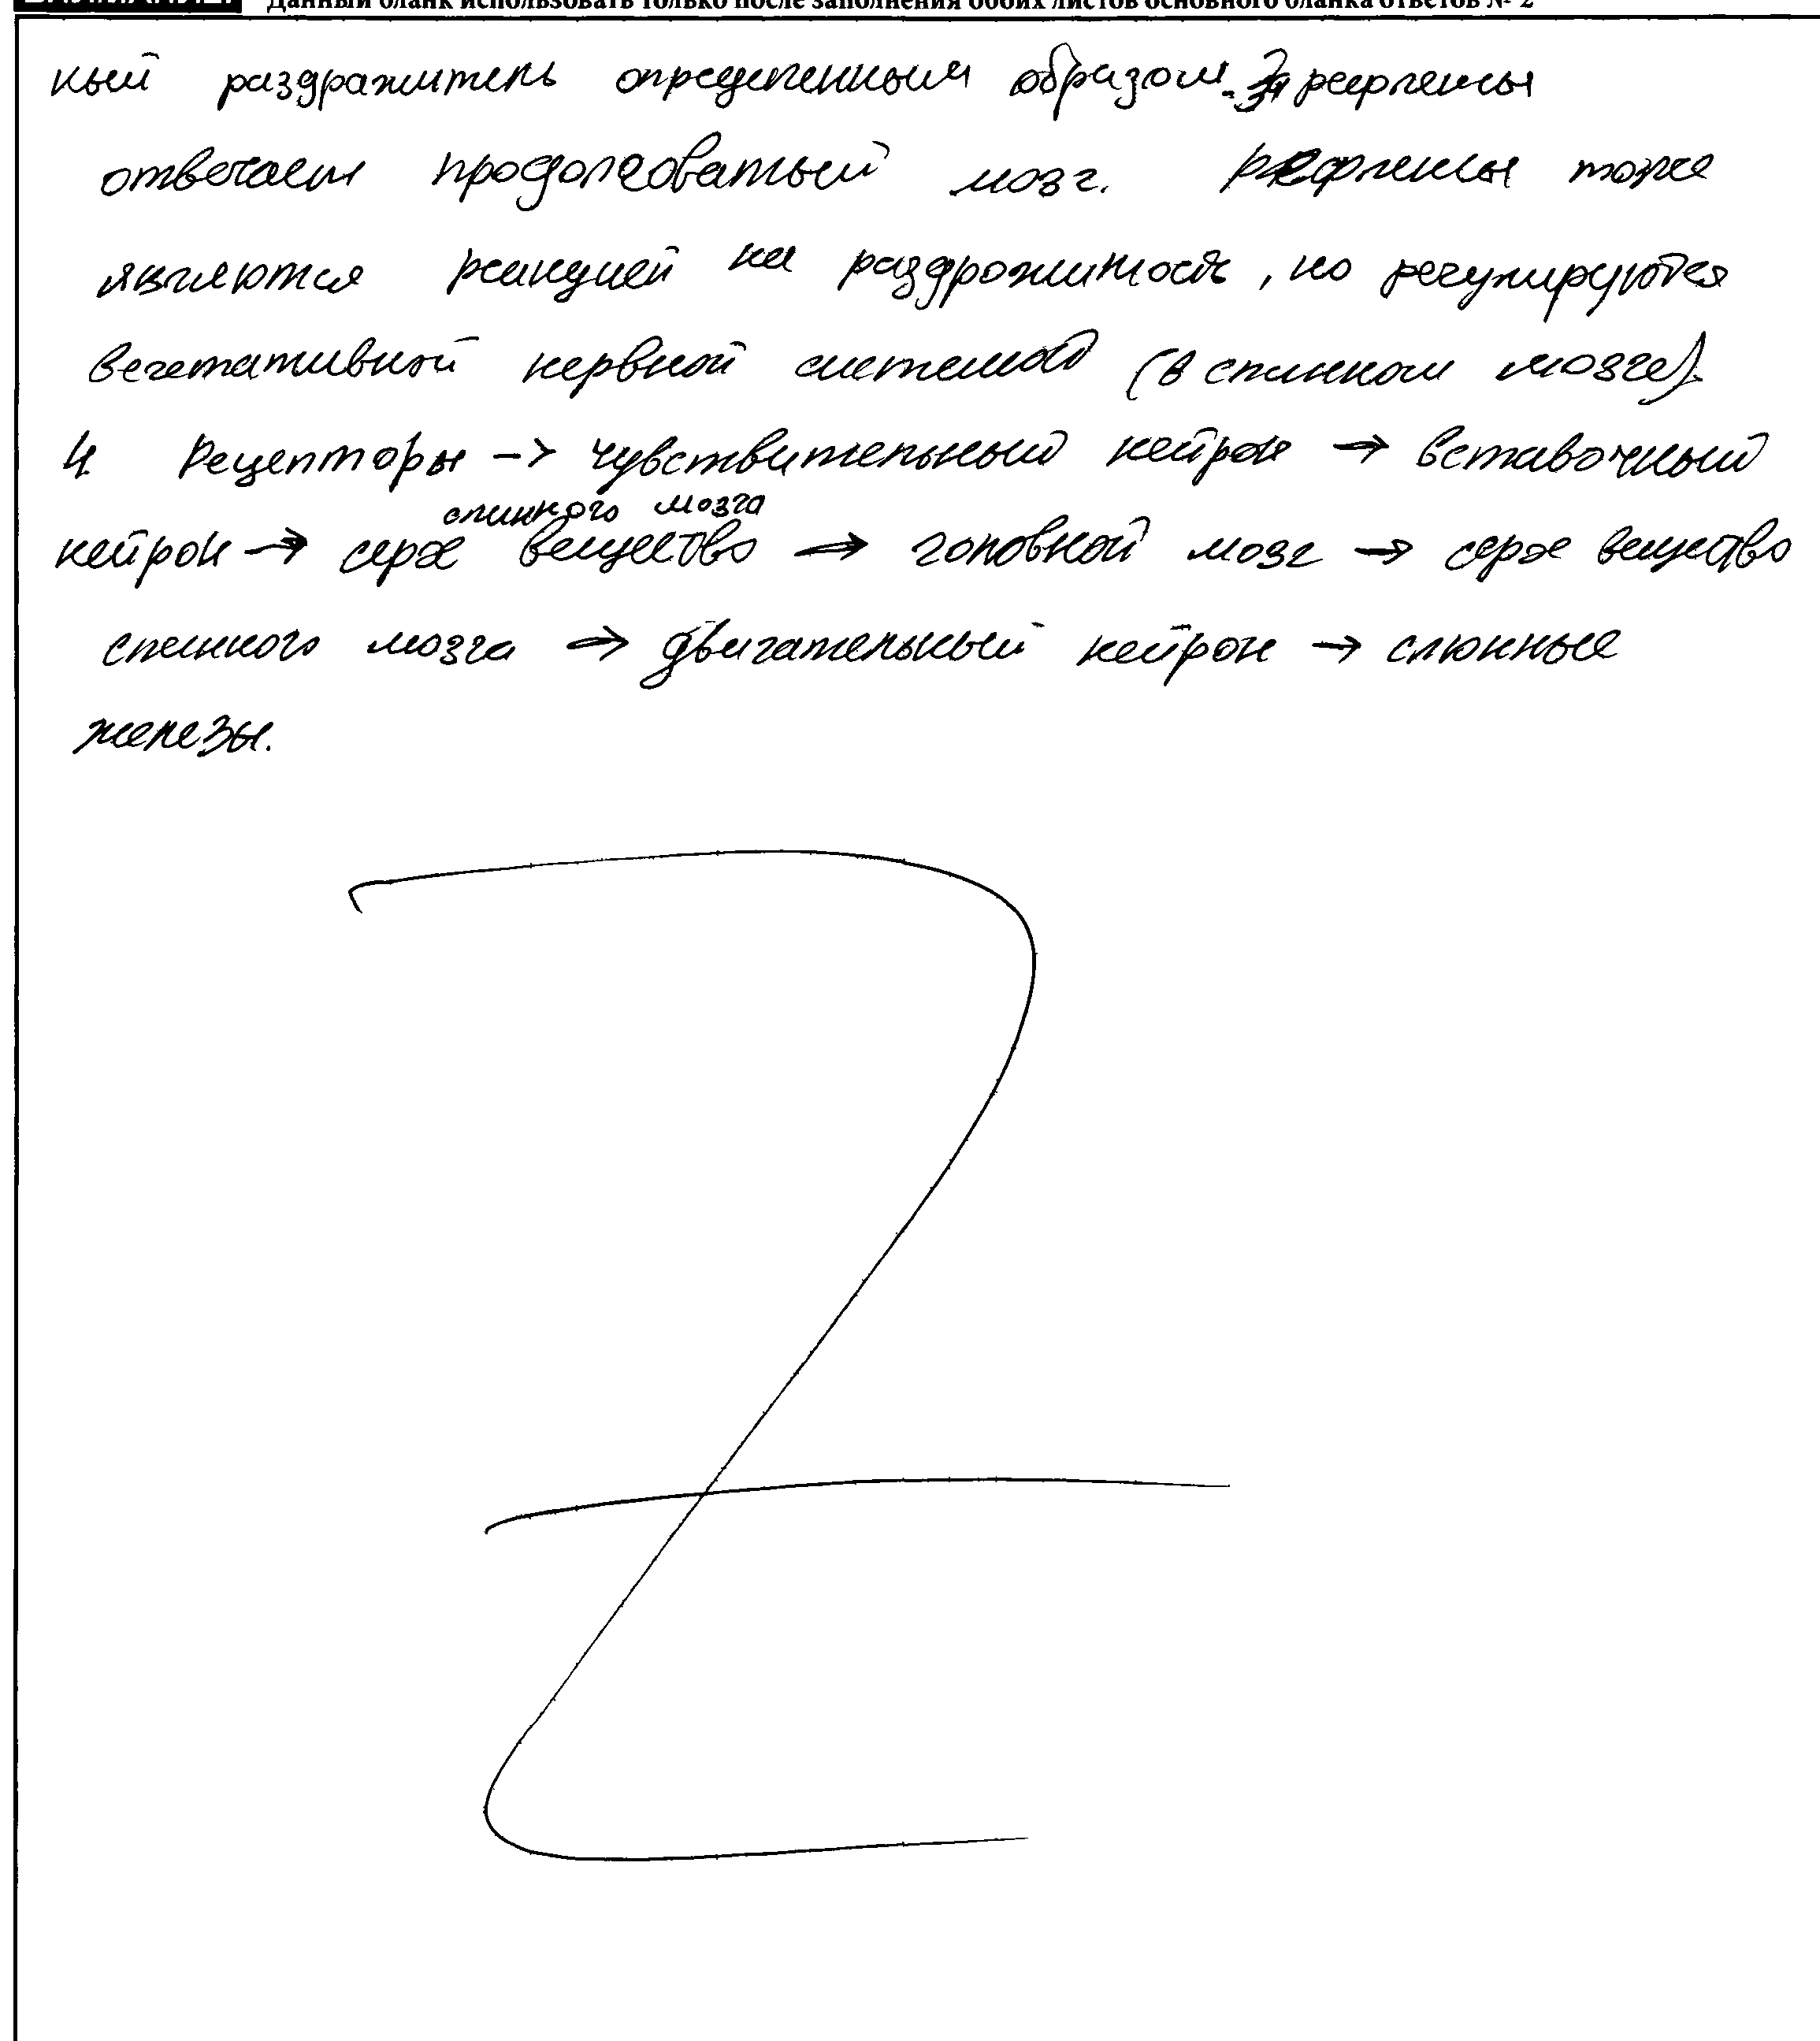 Данный бланк использовать только после заполнения обоих листов основного бланка ответов № 2
ный раздражитель определенным образом. За рефлексы
отвечает продолговатый мозг. Рефлексы тоже
являются реакцией на раздрожитость, но регулируются
вегетативной нервной системой (в спинном мозге).
4 Рецепторы -> чувствительный нейрон → вставочный
спинного мозга
нейрон → серое вещество → головной мозг → серое вещество
спинного мозга → двигательный нейрон → слюнные
железы.